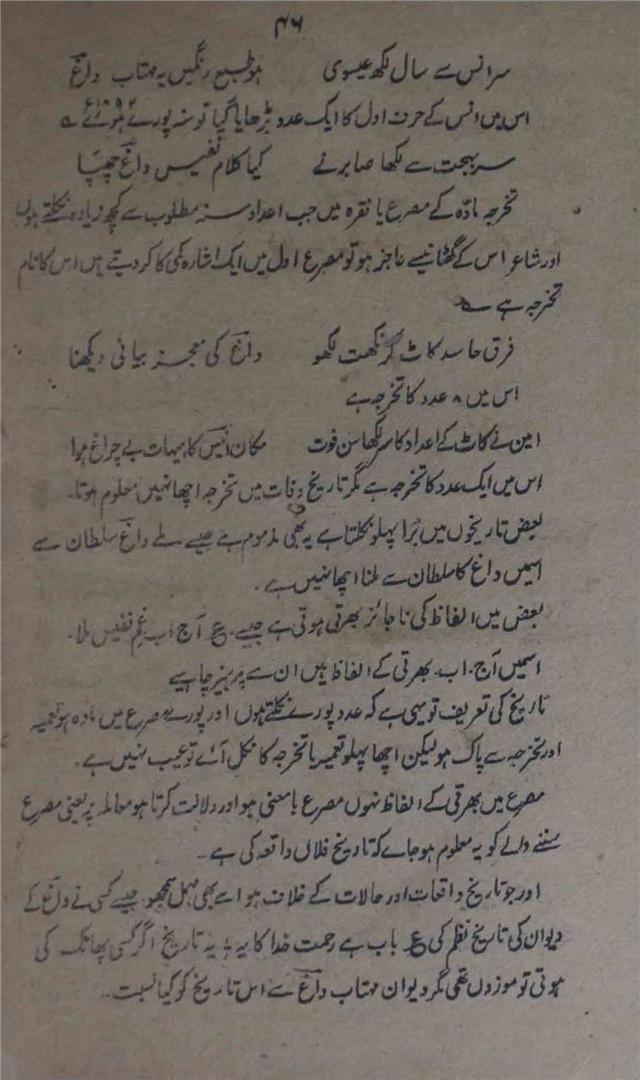 ۴۶
سر انس سے سال لکھ عیسوی ہو طبع رنگیں یہ مہتاب داغ
اس میں انس کے حرف اول کا ایک عدد بڑھایا گیا تو سنہ پورے ہوئے ؎
سر بہجت سے لکھا صابر نے کیا کلام نفیس داغ چھپا
تخرجہ مادّہ کے مصرع یا فقرہ میں جب اعداد سنہ مطلوب سے کچھ زیادہ نکلتے ہوں
اور شاعر اس کے گھٹانیسے عاجز ہو تو مصرع اول میں ایک اشارہ کمی کا کر دیتے ہیں اس کا نام
تخرجہ ہے ؎
فرق حاسد کاٹ کر نکہت لکھو داغ کی معجز بیانی دیکھنا
اس میں ۸ عدد کا تخرجہ ہے
امین نے کاٹ کے اعدا کا سر لکھا سن فوت مکان انیس کا ہیہات بے چراغ ہوا
اس میں ایک عدد کا تخرجہ ہے مگر تاریخ وفات میں تخرجہ اچھا نہیں معلوم ہوتا۔
بعض تاریخوں میں بُرا پہلو نکلتا ہے یہ بھی مذموم ہے جیسے ملے داغ سلطان سے
اسمیں داغ کا سلطان سے ملنا اچھا نہیں ہے۔
بعض میں الفاظ کی ناجائز بھرتی ہوتی ہے جیسے۔ ع آج اب غم نفیس ملا۔
اسمیں آج۔ اب۔ بھرتی کے الفاظ ہیں ان سے پرہیز چاہیے
تاریخ کی تعریف تو یہی ہے کہ عدد پورے نکلتے ہوں اور پورے مصرع میں مادہ ہو تعمیہ
اور تخرجہ سے پاک ہو لیکن اچھا پہلو تعمیہ یا تخرجہ کا نکل آئے تو عیب نہیں ہے۔
مصرع میں بھرتی کے الفاظ نہوں مصرع بامعنی ہو اور دلالت کرتا ہو معاملہ پر یعنی مصرع
سننے والے کو یہ معلوم ہو جاے کہ تاریخ فلاں واقعہ کی ہے۔
اور جو تاریخ واقعات اور حالات کے خلاف ہو اسے بھی مہمل سمجھو جیسے کسی نے داغ کے
دیوان کی تاریخ نظم کی ع باب ہے رحمت خدا کا یہ ؛ یہ تاریخ اگر کسی پھاٹک کی
ہوتی تو موزوں تھی مگر دیوان مہتاب داغ سے اس تاریخ کو کیا نسبت۔